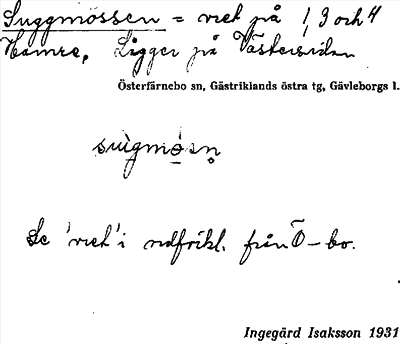 Suggmössen = vret på 1, 3 och 4
Hamre. Ligger på Västersidan
Österfärnebo sn, Gästriklands östra tg, Gävleborgs l.
sùgmǿsn̥
Se 'vret' i ordförkl. från Ö-bo.
Ingegärd Isaksson 1931